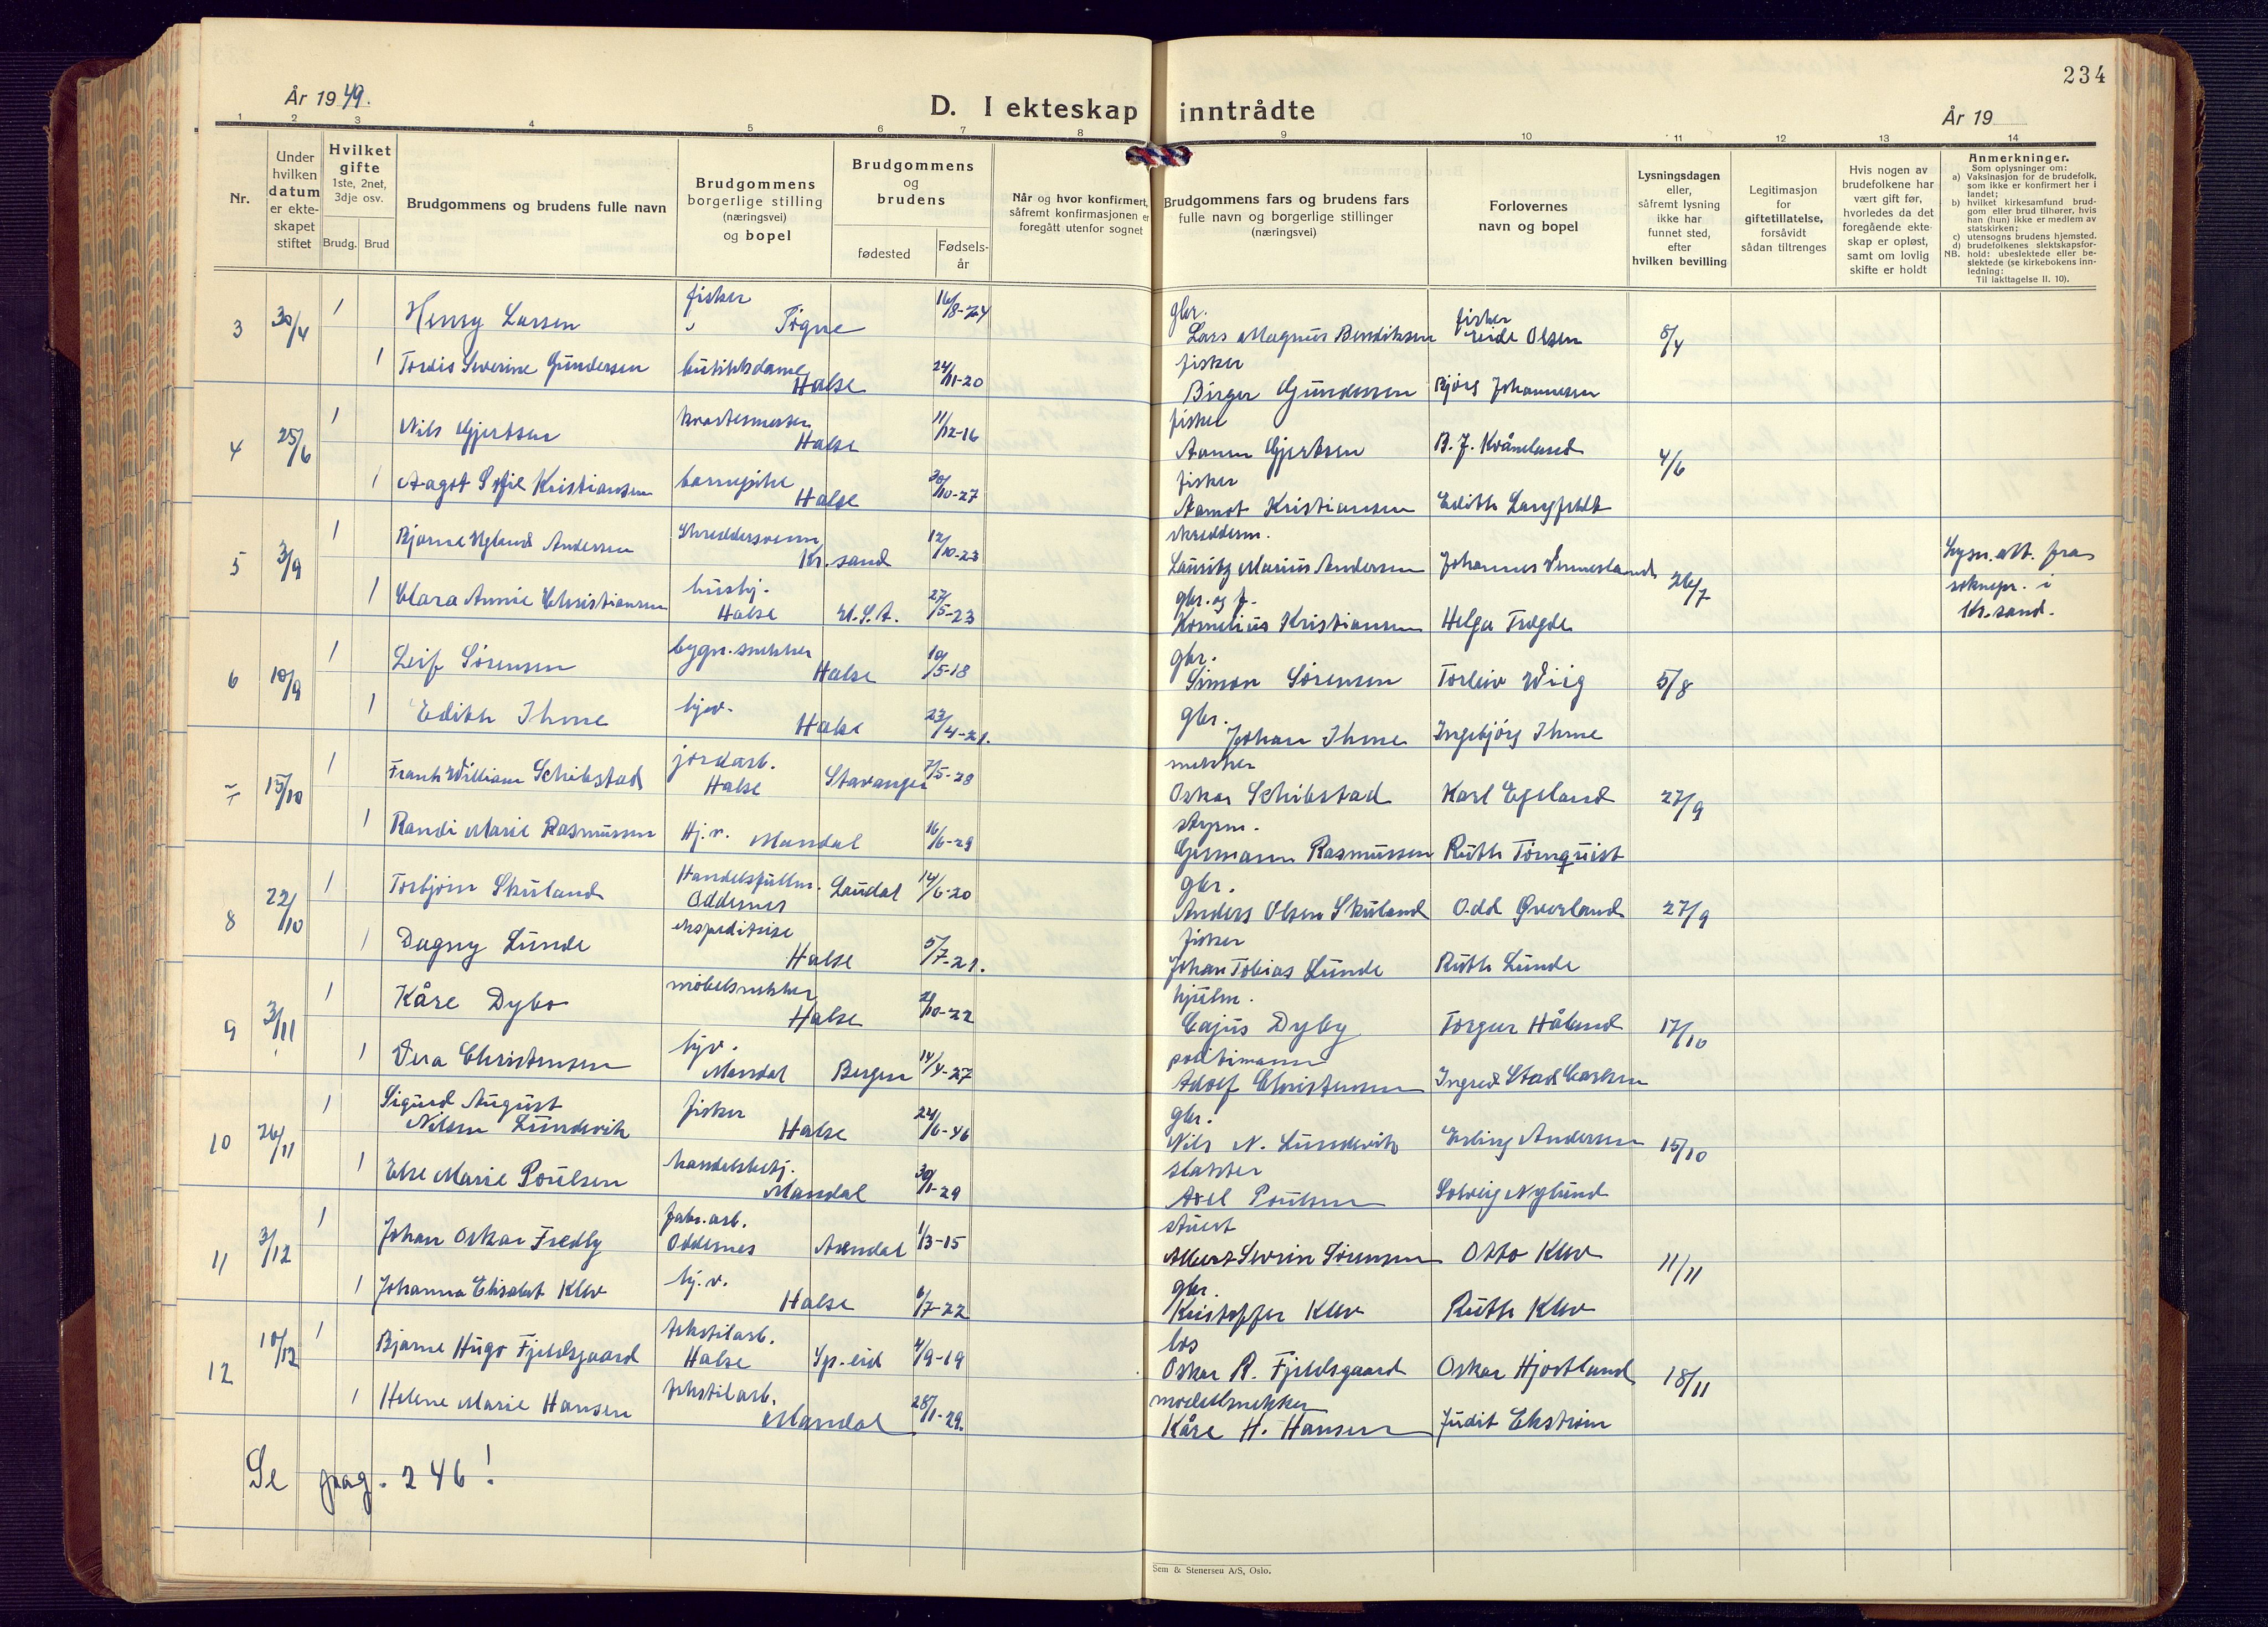 234
År 1949.
D. I ekteskap inntrådte
År 19
1 2 3 4 5 6 7 8 9 10 11 12 13 14
Nr.
Under
hvilken
datum
er ekte-
skapet
stiftet
Hvilket
gifte
1ste, 2net,
3dje osv.
Brudg. Brud
Brudgommens og brudens fulle navn
Brudgommens
borgerlige stilling
(næringsvei)
og bopel
Brudgommens
og
brudens
fødested
Fødsels-
år
Når og hvor konfirmert,
såfremt konfirmasjonen er
foregått utenfor sognet
Brudgommens fars og brudens fars
fulle navn og borgerlige stillinger
(næringsvei)
Forlovernes
navn og bopel
Lysningsdagen
eller,
såfremt lysning
ikke har
funnet sted,
efter
hvilken bevilling
Legitimasjon
for
giftetillatelse,
forsåvidt
sådan tiltrenges
Hvis nogen av
brudefolkene har
vært gift før,
hvorledes da det
foregående ekte-
skap er opløst,
samt om lovlig
skifte er holdt
Anmerkninger.
Som oplysninger om:
a) Vaksinasjon for de brudefolk,
som ikke er konfirmert her i
landet;
b) hvilket kirkesamfund brud-
gom eller brud tilhører, hvis
han (hun) ikke er medlem av
statskirken;
c) utensogns brudens hjemsted.
d) brudefolkenes slektskapsfor-
NB. hold: ubeslektede eller be-
slektede (se kirkebokens inn-
ledning:
Til iakttagelse II. 10).
3 30/4 1 Henry Larsen fisker Tregne 16/8-24 gbr. Lars Magnus Bendiksen fisker Reidl Olsen 8/4
1 Tordis Severine Gundersen butikkdame Halse 24/11-20 fisker Birger Gundersen Bjørg Johannesen
4 25/6 1 Nils Gjertsen Halse 11/12-16 fisker Aanen Gjertsen B. J. Kvåneland 4/6
1 Aagot Sofie Kristiansen barnepike Halse 30/10-27 fisker Aamot Kristiansen Edith Langfeldt
5 3/9 1 Bjarne Nyland Andersen skreddersvenn Kr.sand 12/10-23 skredderm. Lauritz Marius Andersen Johannes Vennesland 26/7 Lysn.att. fra
soknepr. i
Kr.sand.
1 Clara Annie Christiansen husbj. Halse U.S.A. 27/5-23 gbr. og f. Kornelius Kristiansen Helga Tregde
6 10/9 1 Leif Sørensen bygn.snekker Halse 10/5-18 gbr. Simon Sørensen Torleiv Wiig 5/8
1 Edith Ihme hjv. Halse 23/4-21. gbr. Johan Ihme Ingebjørg Ihme
7 15/10 1 Frank William Schibstad jordarb. Halse Stavanger 7/5-28 snekker Oskar Schibstad Karl Egeland 27/9
1 Randi Marie Rasmussen Hj.v. Mandal 16/6-29 styrm. Germann Rasmussen Ruth Tørnquist
8 22/10 1 Torbjørn Skuland Handelsfullm. Oddernes Laudal 14/6-20 gbr. Anders Olsen Skuland Odd Øverland 27/9
1 Dagny Lunde ekspeditrise Halse 5/7-21. fisker Johan Tobias Lunde Ruth Lunde
9 3/11 1 Kåre Dybo møbelsnekker Halse 2/10-22 hjulm. Cajus Dyby Torgeir Håland 17/10
1 Vera Christensen hjv. Mandal Bergen 14/4-27 politimann Adolf Christensen Ingrid Stad Carlsen
10 26/11 1 Sigurd August
Nilsen Lundevik fisker Halse 24/6-46 gbr. Nils N. Lundevik Erling Andersen 15/10
1 Else Marie Poulsen handelsbetj. Mandal 30/1-29 slakter Axel Poulsen Solveig Nylund
11 3/12 1 Johan Oskar Fredly fabr.arb. Oddernes Arendal 1/3-15 stuert Albert Severin Sørensen Otto Klev 11/11
1 Johanna Elisabet Klev hj.v. Halse 6/7-22 gbr. Kristoffer Klev Ruth Klev
12 10/12 1 Bjarne Hugo Fjeldsgaard tekstilarb. Halse Sp.eid 4/9-19 los Oskar R. Fjeldsgaard Oskar Hjortland 18/11
1 Helene Marie Hansen tekstilarb. Mandal 28/1-29. modellsnekker Kåre H. Hansen Judit Ekstrøm
Se pag. 246!
Sem & Stenersen A/S, Oslo.